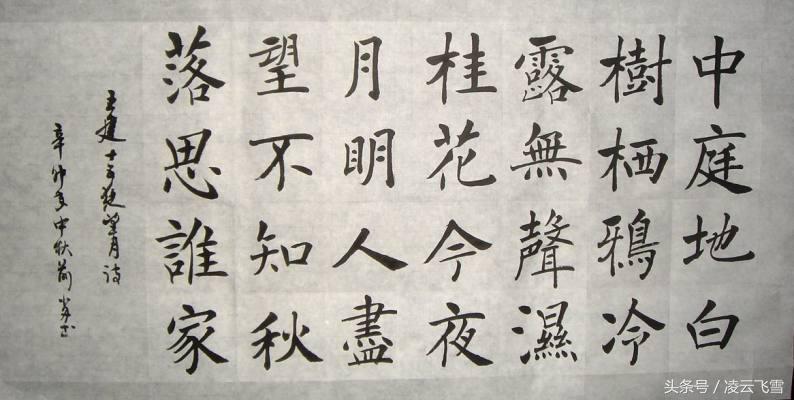 中庭地白
樹栖鴉冷
露無聲濕
桂花今夜
月明人盡
望不知秋
落思誰家
王建十五夜望月诗
辛卯年中秋前
头条号 / 凌云飞雪